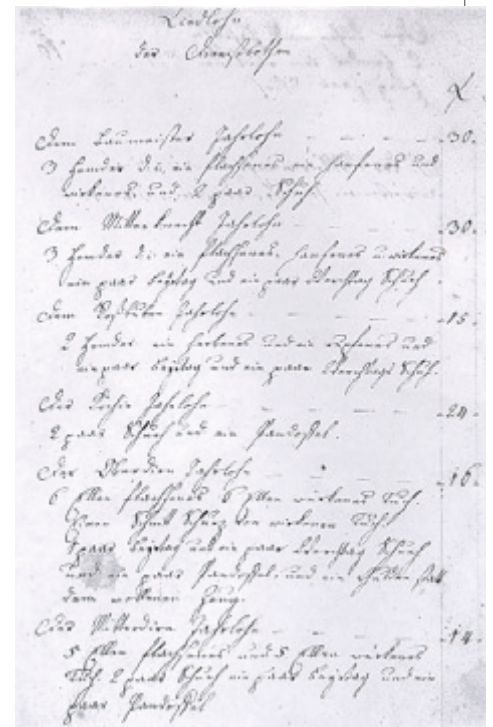 Liedlohn
der Dienstbothen
f
Dem Baumeister Jahrlohn — — — 30.
3 Hemder d. i. ein flachsenes ein harfenes und
wirkenes, und 2 paar Schuh.
Dem Mitterknecht Jahrlohn — — — 30.
3 Hemder d. i. ein flachsenes, harfenes u. wirkenes
ein paar und ein paar Schuh
Dem Jahrlohn — — — 15.
2 Hemder ein und ein und
ein paar und ein paar Schuh.
Der Köchin Jahrlohn — — — 24.
2 paar Schuh und ein Pandoffel.
Der Oberdirn Jahrlohn — — 16.
6 Ellen flachsenes 6 Ellen wirkenes Tuch.
Einen Schurz von wirkenen Tuch.
1 paar und ein paar Schuh
und ein paar Pandoffel, und ein Gulden statt
dem wollenen Zeug.
Der Mitterdirn Jahrlohn — — — 14.
5 Ellen flachsenes und 5 Ellen wirkenes
Tuch. 2 paar Schuh ein paar und ein
paar Pandoffel